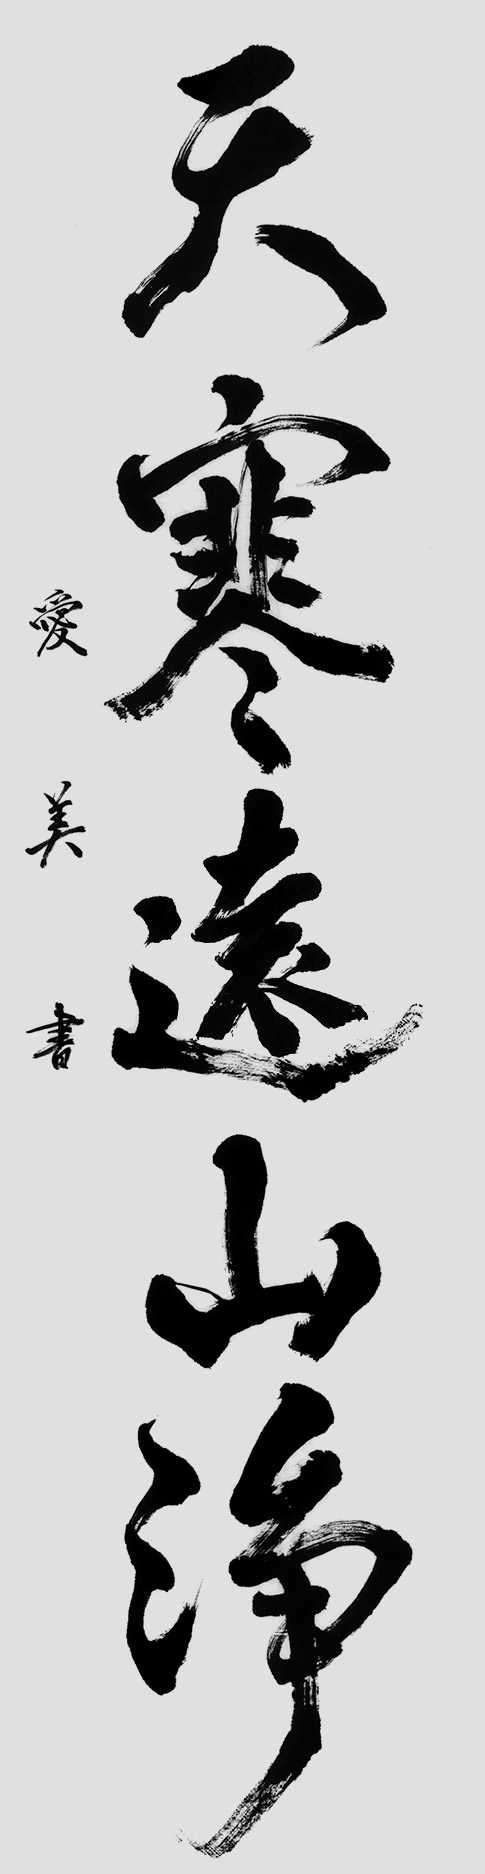 天寒遠山淨
愛美書